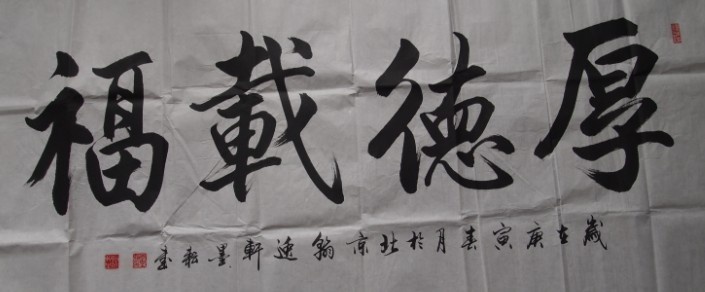 厚德載福
歲在庚寅春月於北京翰逸軒墨耘書